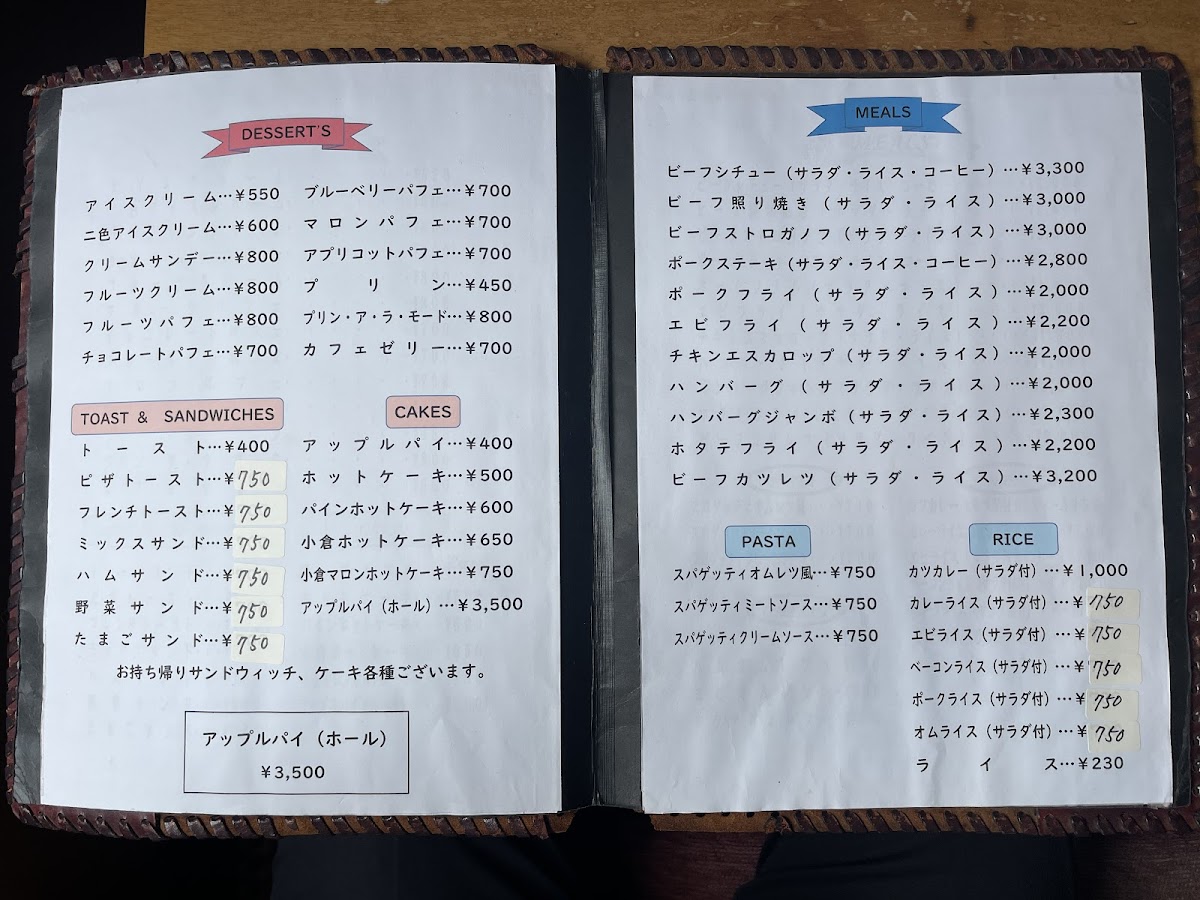 DESSERT'S
アイスクリーム…¥550
二色アイスクリーム…¥600
クリームサンデー…¥800
フルーツクリーム…¥800
フルーツパフェ…¥800
チョコレートパフェ…¥700
ブルーベリーパフェ…¥700
マロンパフェ…¥700
アプリコットパフェ…¥700
プリン…¥450
プリン・ア・ラ・モード…¥800
カフェゼリー…¥700
TOAST & SANDWICHES
トースト…¥400
ピザトースト…¥750
フレンチトースト…¥750
ミックスサンド…¥750
ハムサンド…¥750
野菜サンド…¥750
たまごサンド…¥750
CAKES
アップルパイ…¥400
ホットケーキ…¥500
パインホットケーキ…¥600
小倉ホットケーキ…¥650
小倉マロンホットケーキ…¥750
アップルパイ（ホール）…¥3,500
お持ち帰りサンドウィッチ、ケーキ各種ございます。
アップルパイ（ホール）
¥3,500
MEALS
ビーフシチュー（サラダ・ライス・コーヒー）…¥3,300
ビーフ照り焼き（サラダ・ライス）…¥3,000
ビーフストロガノフ（サラダ・ライス）…¥3,000
ポークステーキ（サラダ・ライス・コーヒー）…¥2,800
ポークフライ（サラダ・ライス）…¥2,000
エビフライ（サラダ・ライス）…¥2,200
チキンエスカロップ（サラダ・ライス）…¥2,000
ハンバーグ（サラダ・ライス）…¥2,000
ハンバーグジャンボ（サラダ・ライス）…¥2,300
ホタテフライ（サラダ・ライス）…¥2,200
ビーフカツレツ（サラダ・ライス）…¥3,200
PASTA
スパゲッティオムレツ風…¥750
スパゲッティミートソース…¥750
スパゲッティクリームソース…¥750
RICE
カツカレー（サラダ付）…¥1,000
カレーライス（サラダ付）…¥750
エビライス（サラダ付）…¥750
ベーコンライス（サラダ付）…¥750
ポークライス（サラダ付）…¥750
オムライス（サラダ付）…¥750
ライス…¥230